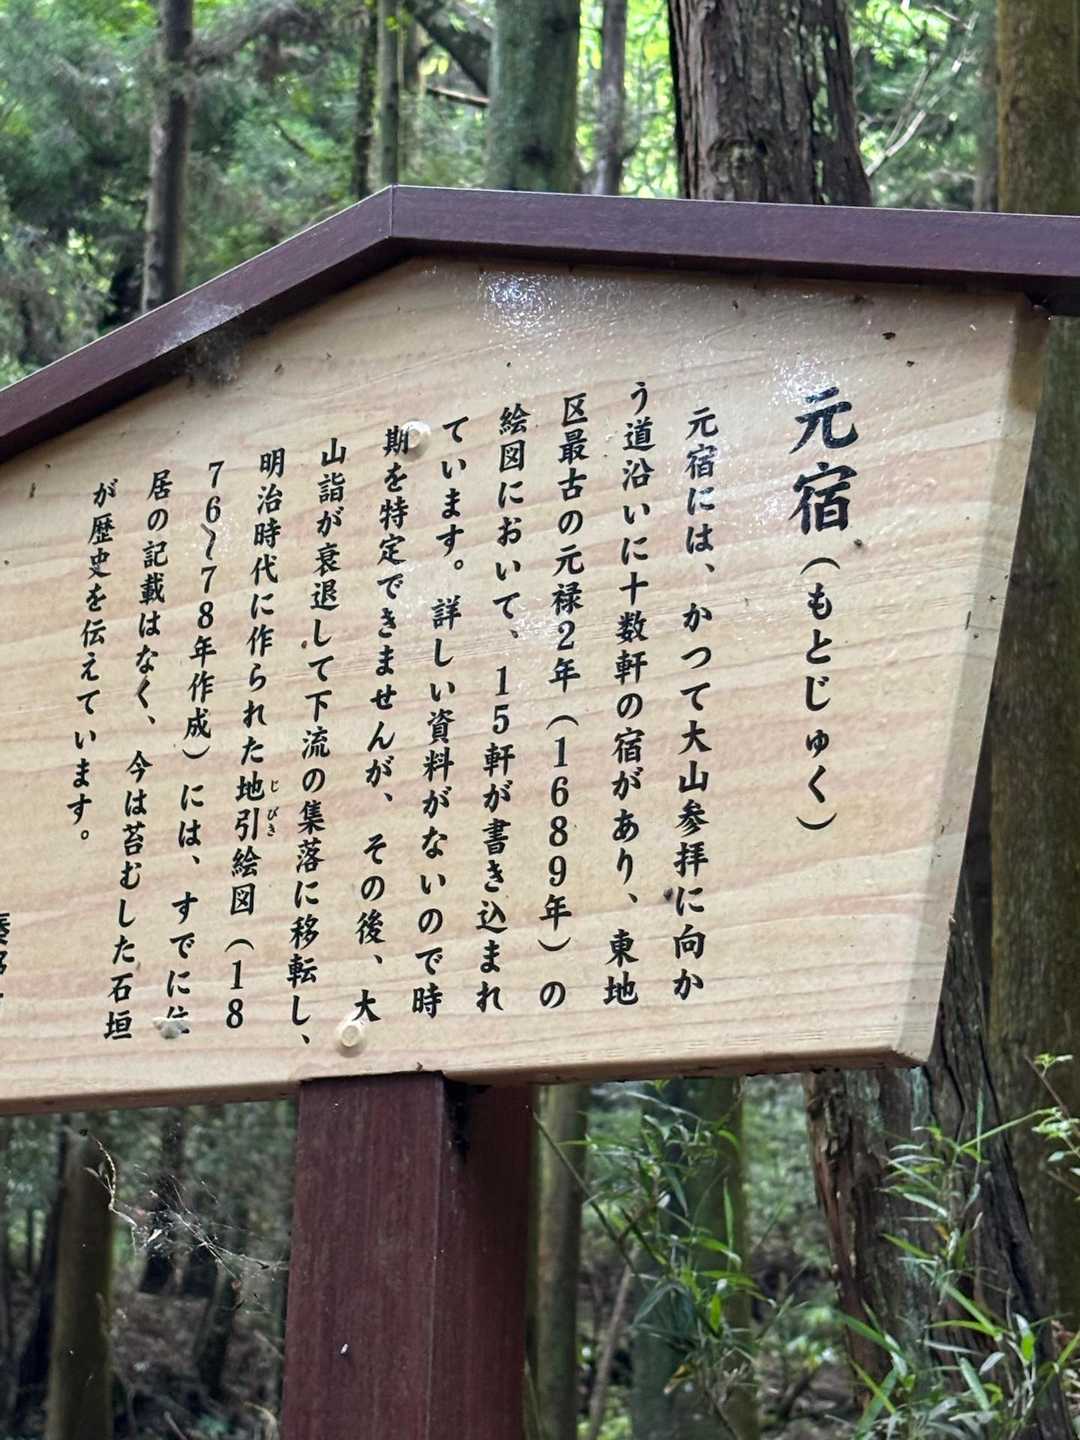 元宿（もとじゅく）
元宿には、かつて大山参拝に向か
う道沿いに十数軒の宿があり、東地
区最古の元禄2年（1689年）の
絵図において、15軒が書き込まれ
ています。詳しい資料がないので時
期を特定できませんが、その後、大
山詣が衰退して下流の集落に移転し、
明治時代に作られた地引絵図（18
じびき
76〜78年作成）には、すでに住
居の記載はなく、今は苔むした石垣
が歴史を伝えています。